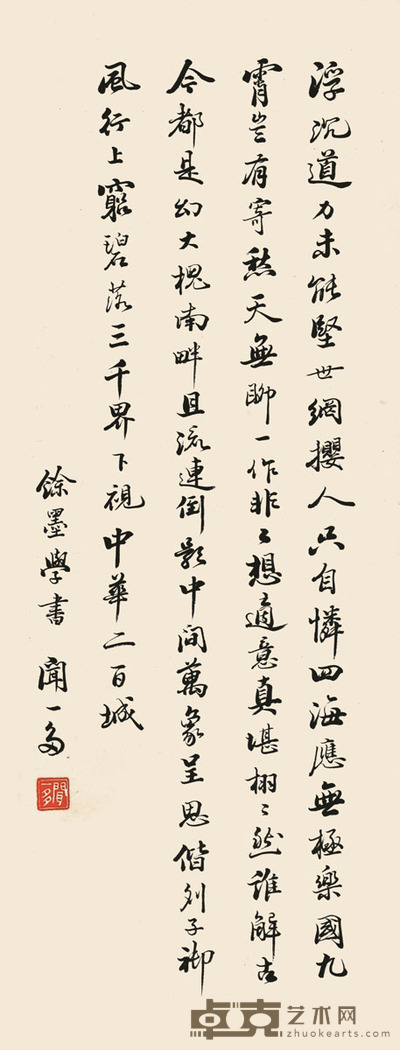 浮沉道力未能堅世網攖人只自憐四海應無極樂國九
霄豈有寄愁天無聊一作非〻想適意真堪栩〻然誰解古
今都是幻大槐南畔且流連倒影中間萬象呈思偕列子禦
風行上窮碧落三千界下視中華二百城
餘墨學書 聞一多
聞一多
卓克艺术网
zhuokearts.com